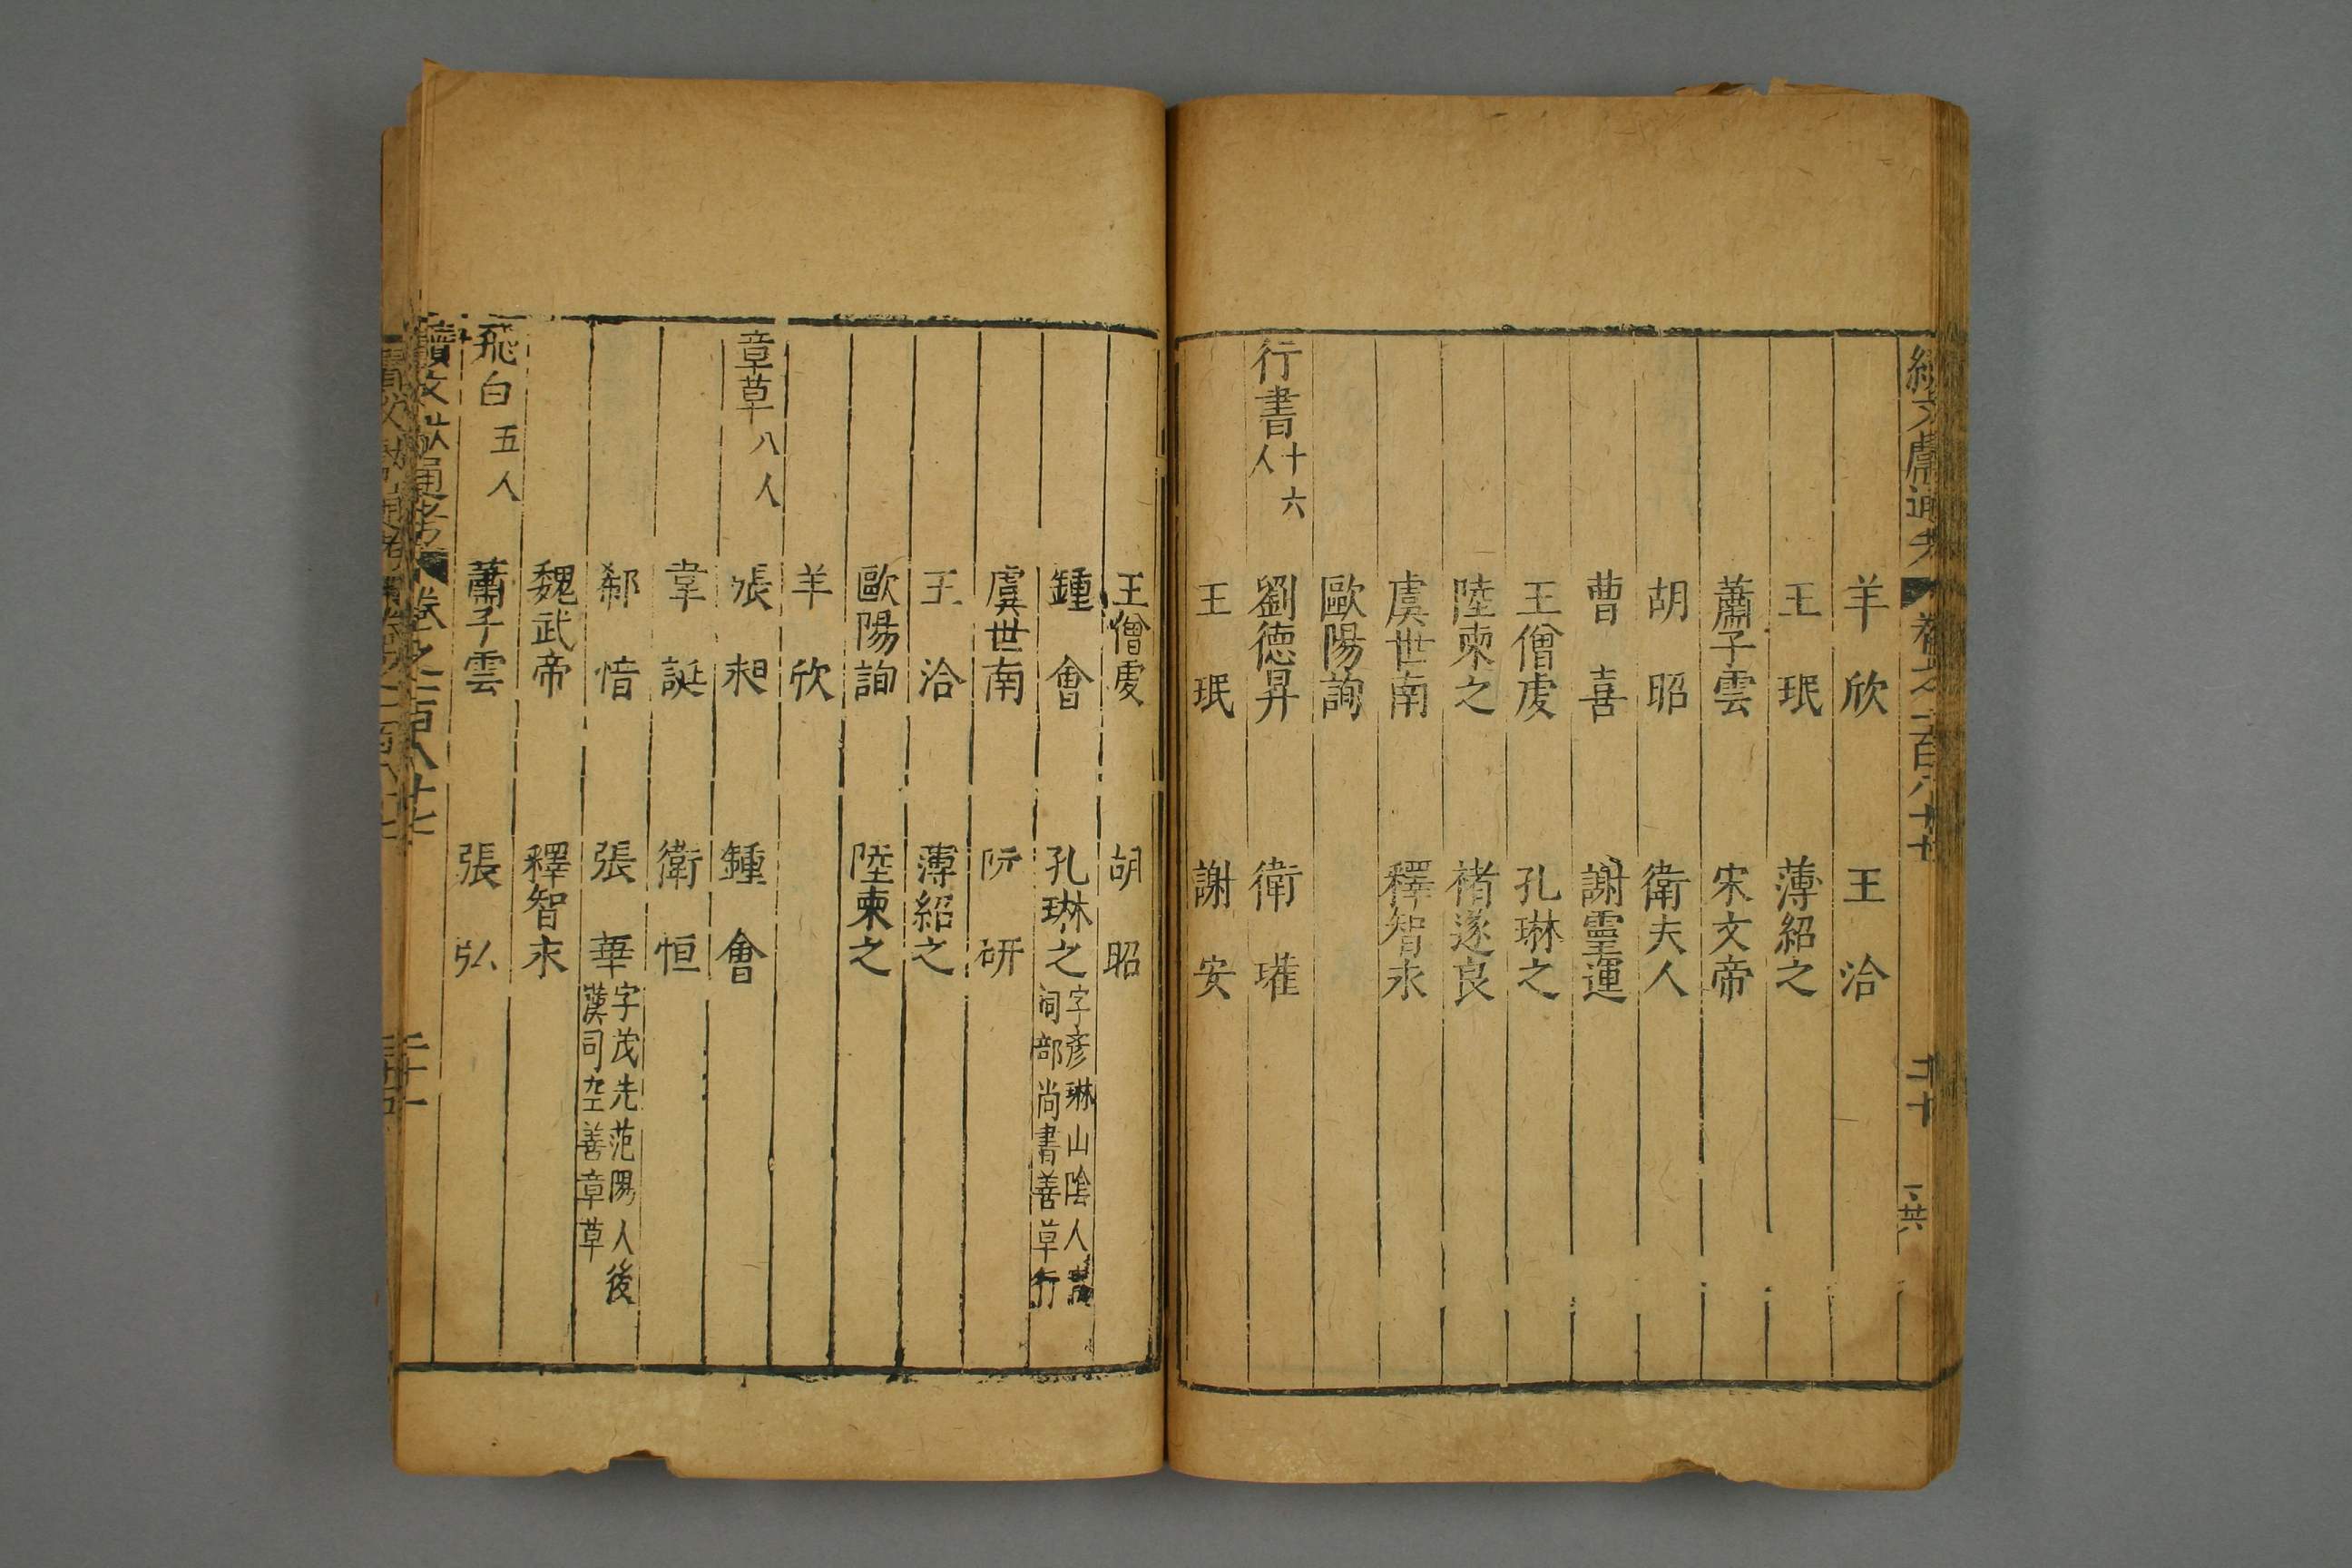 續文獻通考 卷之一百八十七
羊欣 王洽
王珉 薄紹之
蕭子雲 宋文帝
胡昭 衛夫人
曹喜 謝靈運
王僧虔 孔琳之
陸柬之 褚遂良
虞世南 釋智永
歐陽詢
行書十六人 劉德昇 衛瓘
王珉 謝安
王僧虔 胡昭
鍾會 孔琳之 字彥琳山陰人
祠部尚書善草行
虞世南 阮研
王洽 薄紹之
歐陽詢 陸柬之
羊欣
章草八人 張昶 鍾會
韋誕 衛恒
郗愔 張華 字茂先范陽人後
漢司空善章草
魏武帝 釋智永
飛白五人 蕭子雲 張弘
續文獻通考 卷之一百八十七